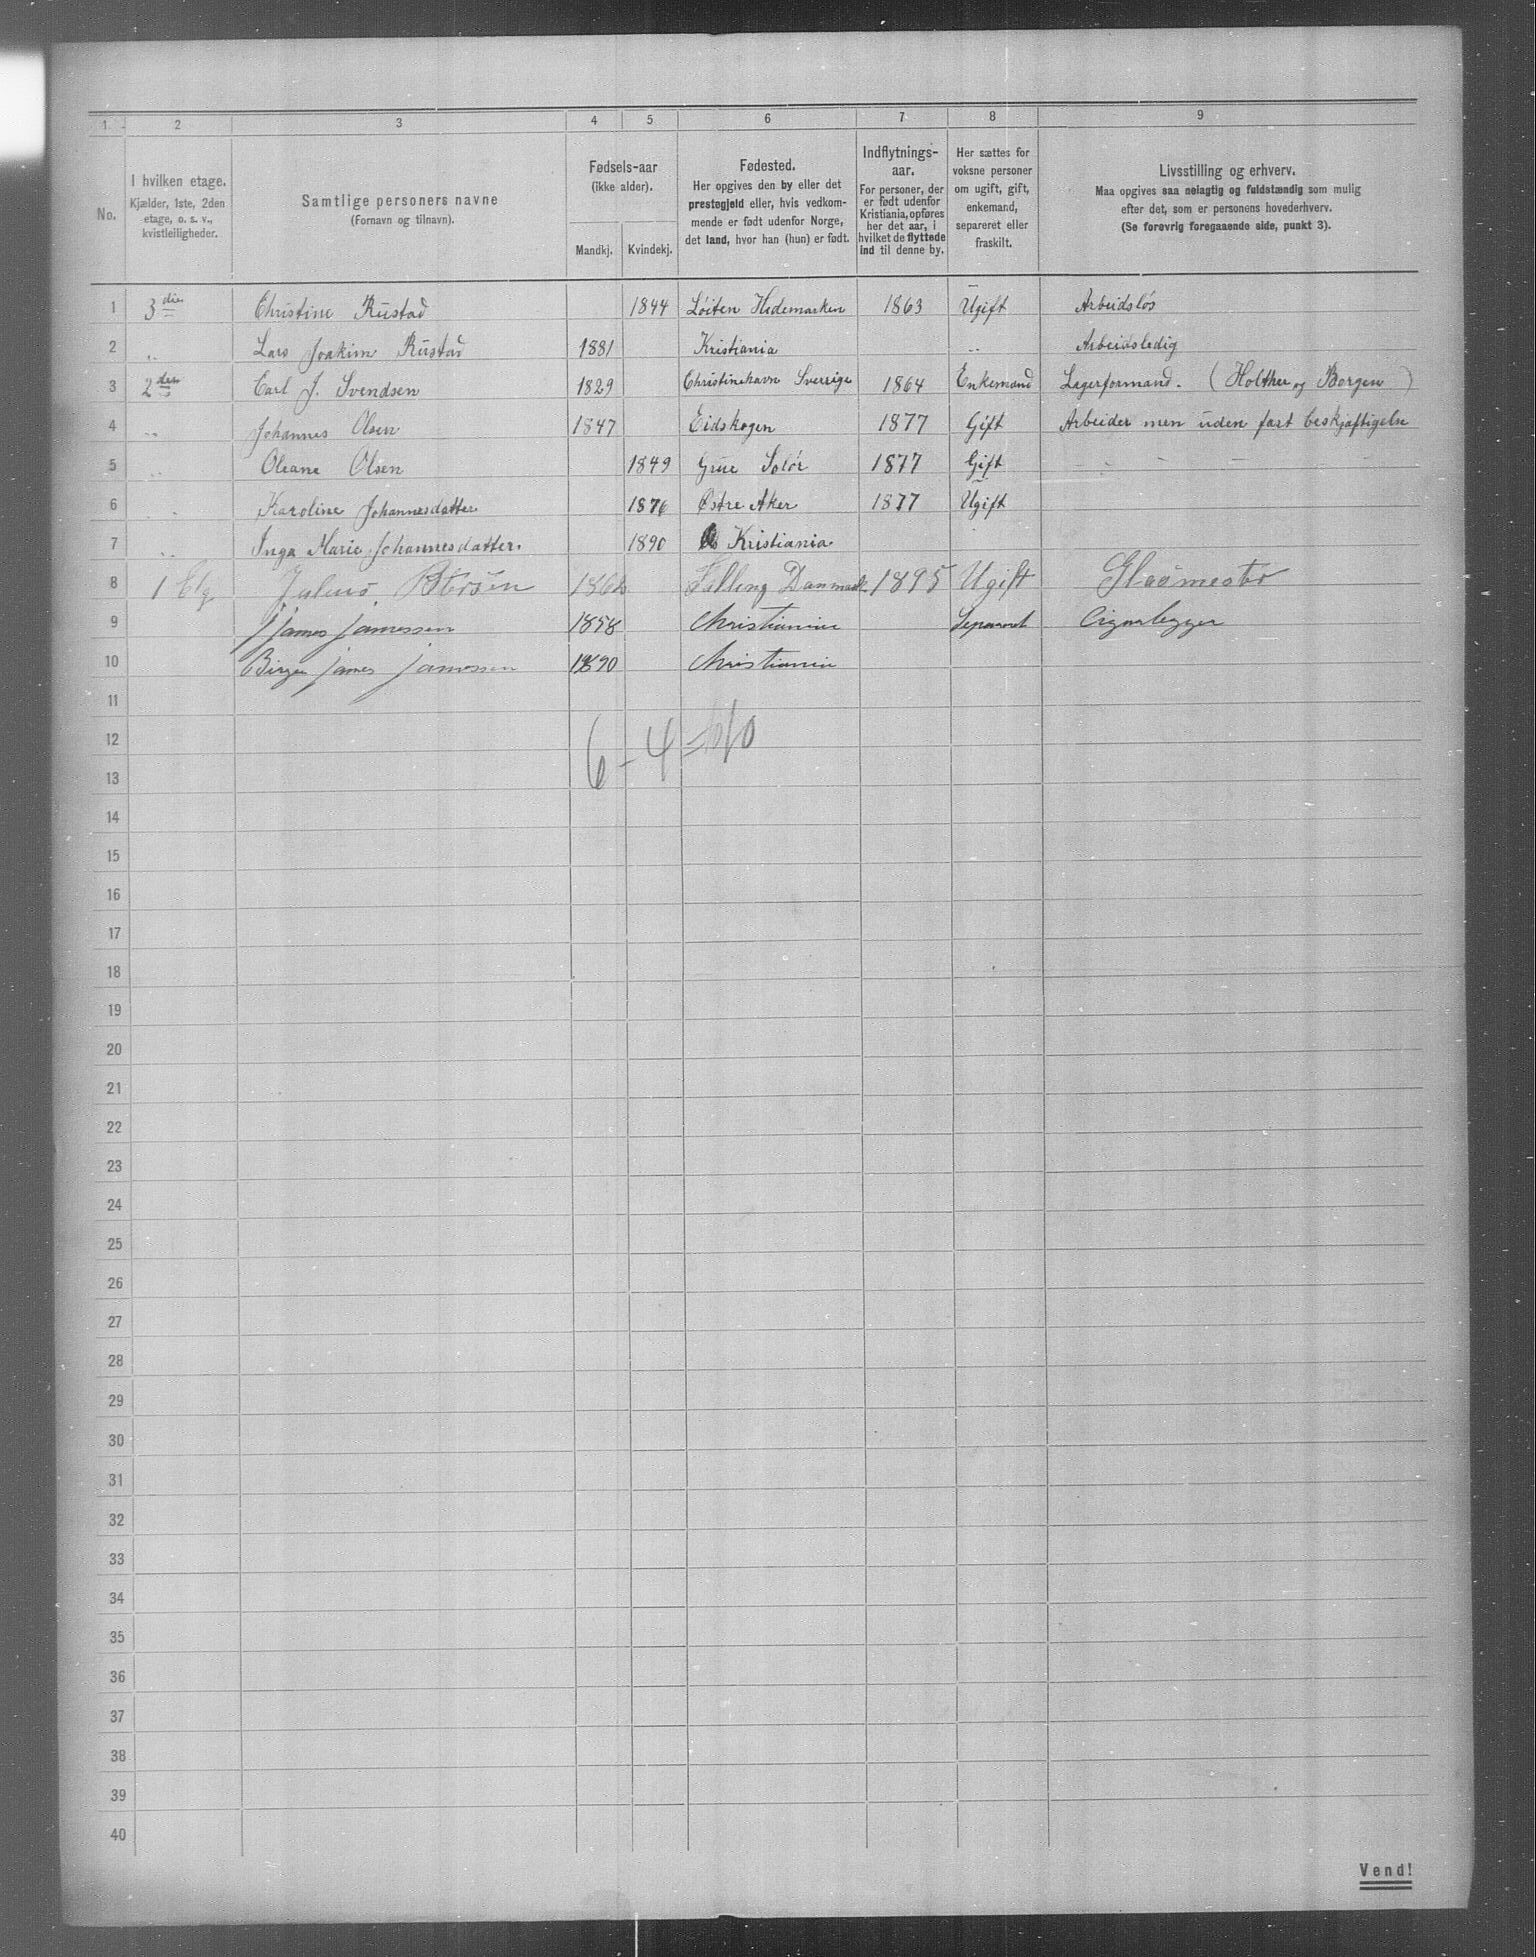 1. 2 3 4 5 6 7 8 9
No.
I hvilken etage.
Kjælder, 1ste, 2den
etage, o. s. v.,
kvistleiligheder.
Samtlige personers navne
(Fornavn og tilnavn).
Fødsels-aar
(ikke alder).
Mandkj. Kvindekj.
Fødested.
Her opgives den by eller det
prestegjeld eller, hvis vedkom-
mende er født udenfor Norge,
det land, hvor han (hun) er født.
Indflytnings-
aar.
For personer, der
er født udenfor
Kristiania, opføres
her det aar, i
hvilket de flyttede
ind til denne by.
Her sættes for
voksne personer
om ugift, gift,
enkemand,
separeret eller
fraskilt.
Livsstilling og erhverv.
Maa opgives saa nøiagtig og fuldstændig som mulig
efter det, som er personens hovederhverv.
(Se forøvrig foregaaende side, punkt 3).
1 3die Christine Rustad 1844 Løiten Hedemarken 1863 Ugift Arbeidsløs
2 „ Lars Joakim Rustad 1881 Kristiania „ Arbeidsledig
3 2den Carl J. Svendsen 1829 Christinehavn Sverrige 1864 Enkemand Lagerformand. (Holther og Borgen)
4 „ Johannes Olsen 1847 Eidskogen 1877 Gift Arbeider men uden fast beskjæftigelse
5 „ Oleane Olsen 1849 Grue Solør 1877 Gift - - - - - -
6 „ Karoline Johannesdatter 1876 Østre Aker 1877 Ugift
7 „ Inga Marie Johannesdatter. 1890 Kristiania
8 1 Etg Julius 1895 Ugift Glasmester
9 James Jamessen 1858 Christiania Separeret Cigarlegger
10 Birger James Jamessen 1890 Christiania
11
12 6 - 4 = 10
13
14
15
16
17
18
19
20
21
22
23
24
25
26
27
28
29
30
31
32
33
34
35
36
37
38
39
40
Vend!